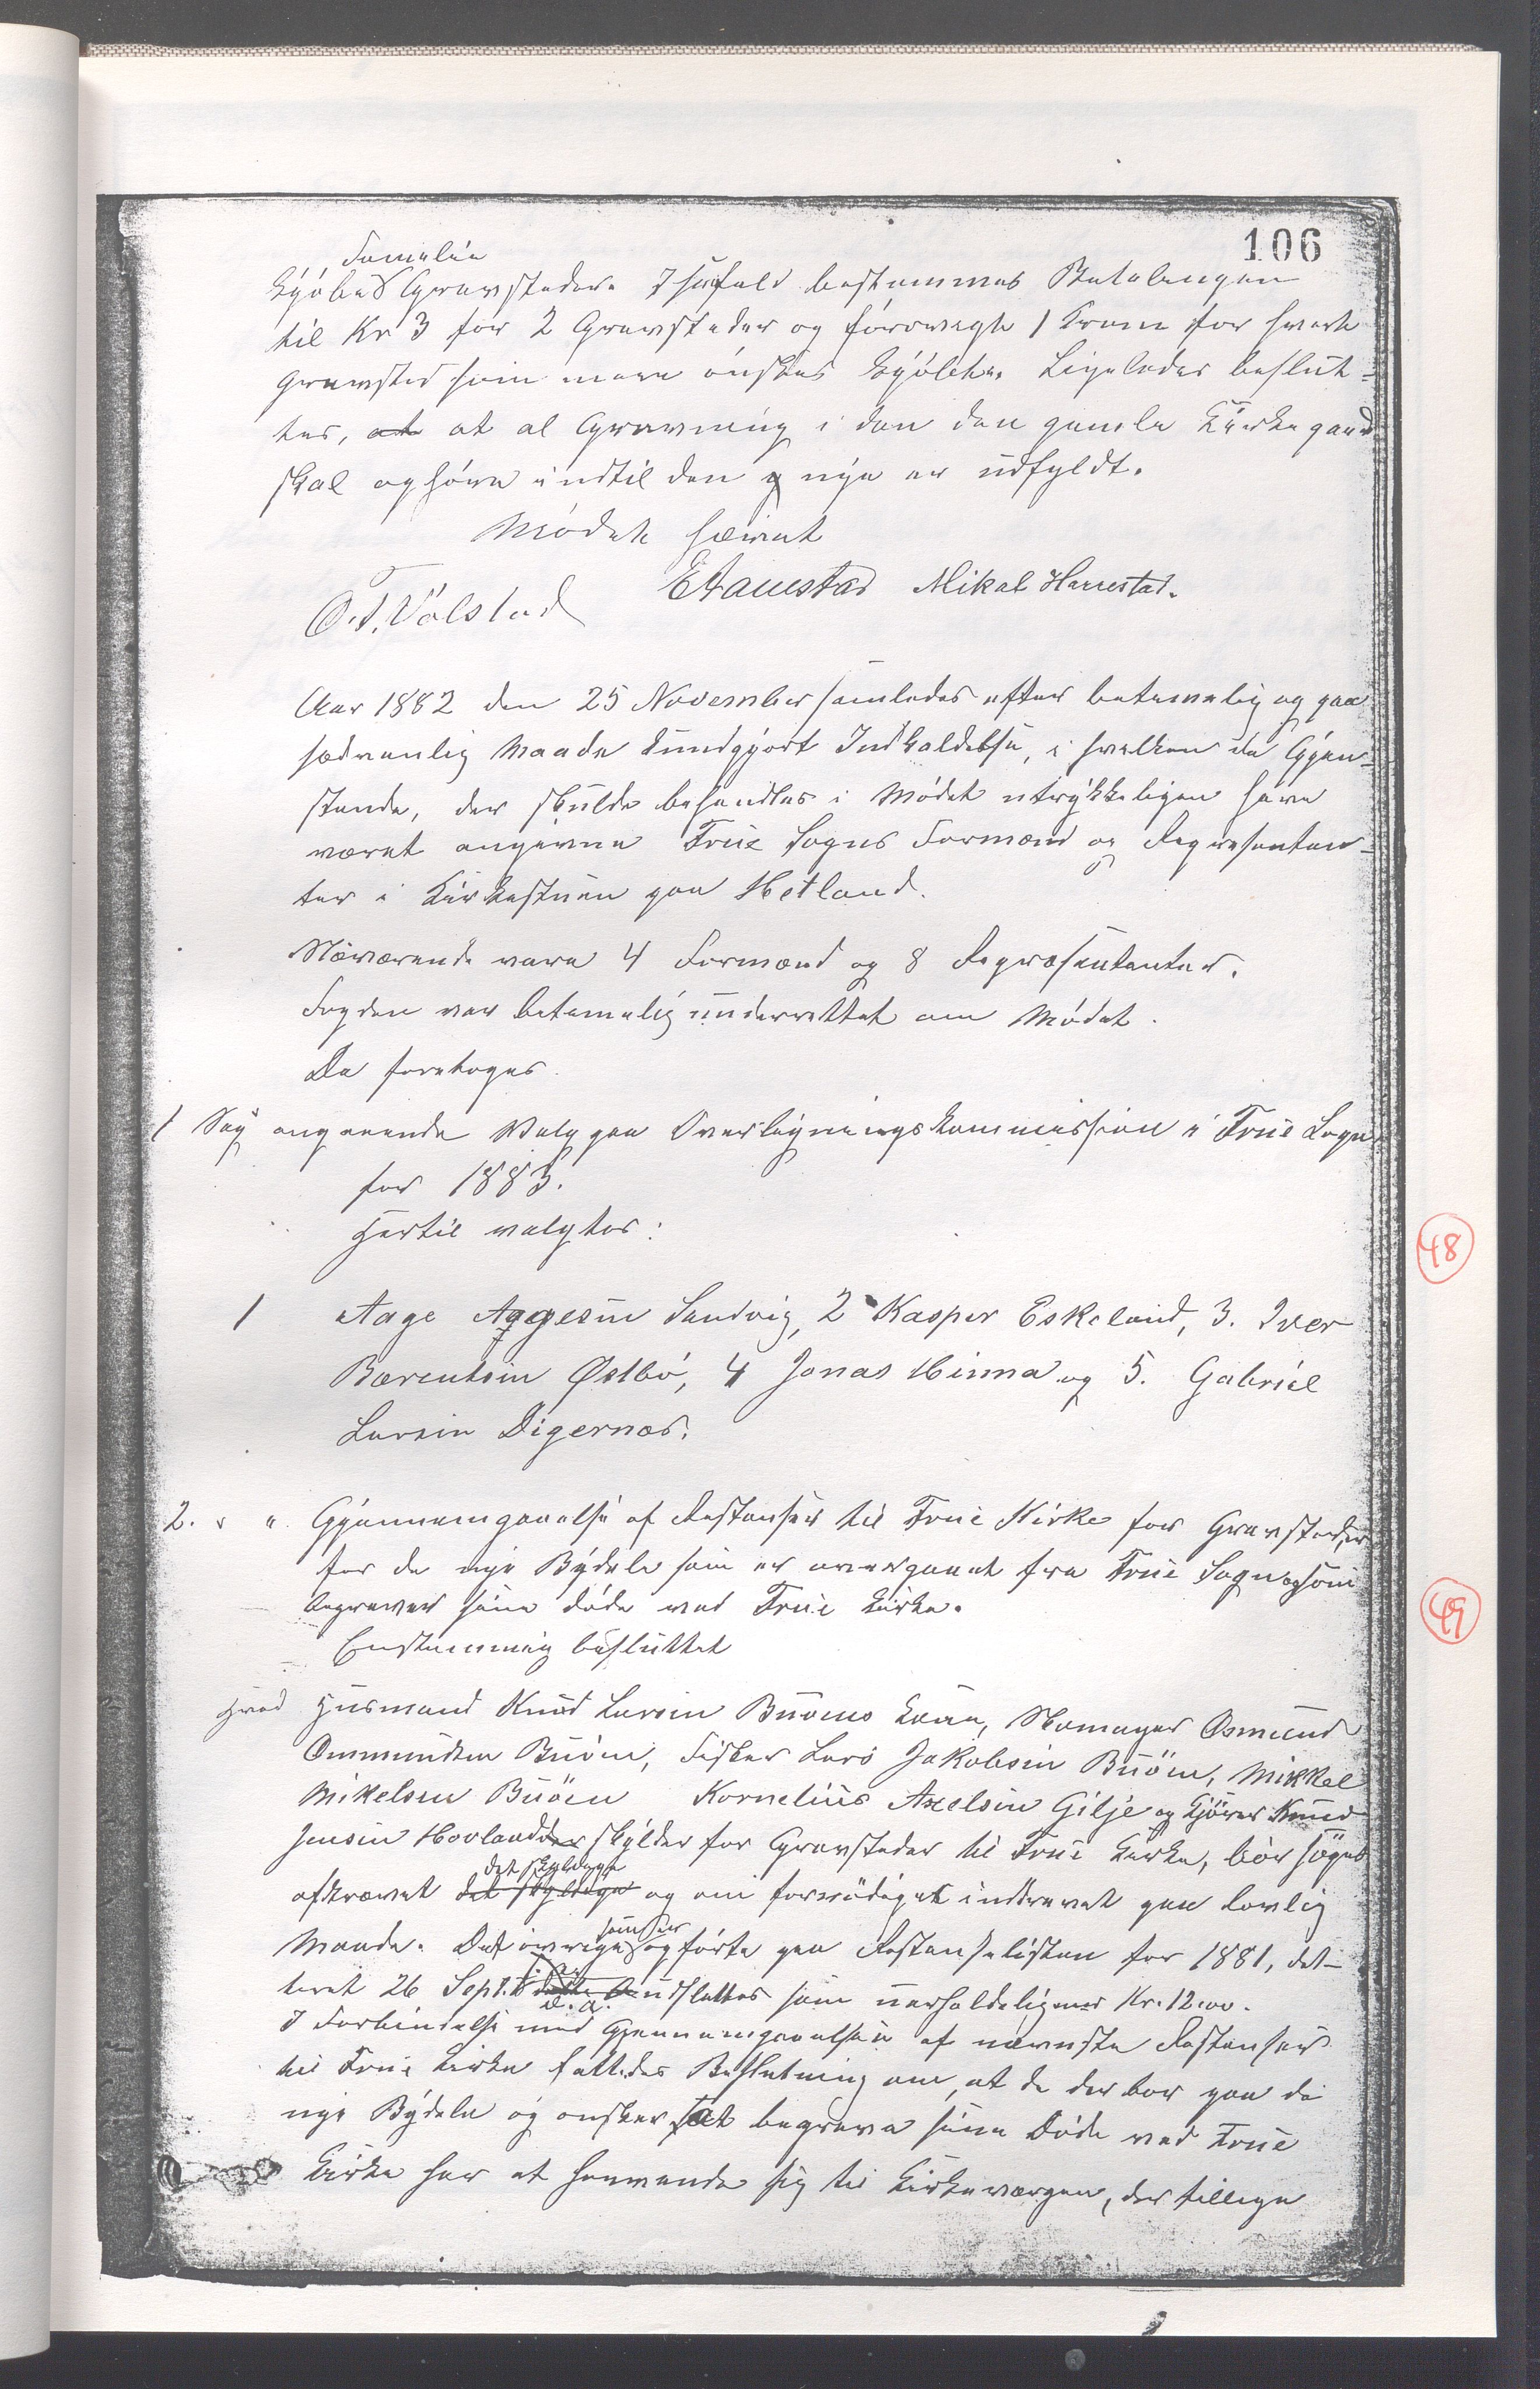 106
Familie
kjøbes Gravsteder. I saafald bestemmes Betalingen
til Kr 3 for 2 Gravsteder og forøvrigt 1 Krone for hvert
Gravsted som mere ønskes kjøbt. Ligeledes beslut-
tes, at at al Gravning i den den gamle Kirkegaard
skal ophøre indtil den g nye er udfyldt.
Mødet hævet
O. T. Volstad E Haustad Mikal Harrestad.
Aar 1882 den 25 November samledes efter betimelig og paa
sædvanlig Maade kundgjort Indkaldelse, i hvilken de Gjen-
stande, der skulde behandles i Mødet utrykkeligen have
været angivne Frue Sogns Formænd og Repræsentan-
ter i Kirkestuen paa Hetland.
Nærværende vare 4 Formænd og 8 Repræsentanter.
Fogden var betimelig underrettet om Mødet.
Da foretoges.
1 Sag angaaende Valg paa Overligningskommission i Frue Sogn
for 1883.
Hertil valgtes:
1 Aage Aagesen Sandvig, 2 Kasper Eskeland, 3. Iver
Bærentsen Østbø, 4 Jonas Hinna og 5. Gabriel
Larsen Digernæs.
2. " " Gjennemgaaelse af Restanser til Frue Kirke for Gravsteder
for de nye Bydele som er overgaaet fra Frue Sogn og som
begraver sine døde ved Frue Kirke.
Enstemmig besluttet
Hvad Husmand Knud Larsen Buøens Kone, Osmund
Ommundsen Buøen, Fisker Lars Jakobsen Buøen, Mikkel
Mikelsen Buøen Kornelius Axelsen Gilje og Kjører Knud
Jensen Hovland der skylder for Gravsteder til Frue Kirke, bør søges
det skyldige
afkrævet det skyldige og om fornødiget inddrevet paa lovlig
som er
Maade. Det øvrige opførte paa Restanselisten for 1881, dat-
teret 26 Sept. d. a. udslettes som uerholdeligmed Kr. 12.00.
I Forbindelse med Gjennemgaaelsen af nævnte Restanser
til Frue Kirke fattedes Beslutning om, at de der bor paa de
nye Bydele og ønsker at begrave sine Døde ved Frue
Kirke har at henvende sig til Kirkeværgen, der tillige
48
49